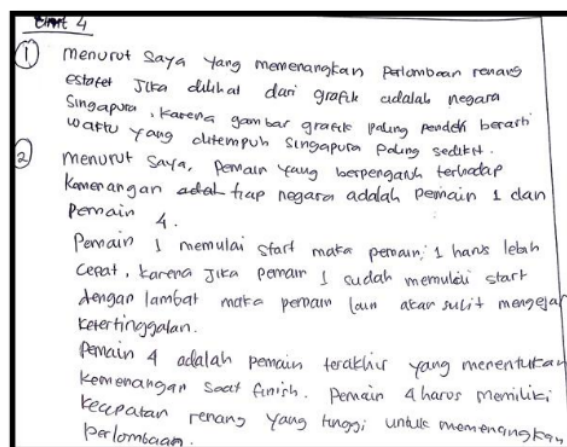 4
① Menurut Saya yang memenangkan perlombaan renang
estafet Jika dilihat dari grafik adalah negara
Singapura, karena gambar grafik paling pendek berarti
waktu yang ditempuh singapura paling sedikit.
② menurut saya, pemain yang berpengaruh terhadap
kemenangan adal tiap negara adalah pemain 1 dan
pemain 4.
Pemain 1 memulai start maka pemain 1 harus lebih
cepat, karena jika pemain 1 sudah memulai start
dengan lambat maka pemain lain akan sulit mengejar
ketertinggalan.
Pemain 4 adalah pemain terakhir yang menentukan
kemenangan saat finish. Pemain 4 harus memiliki
kecepatan renang yang tinggi untuk memenangkan
perlombaan.